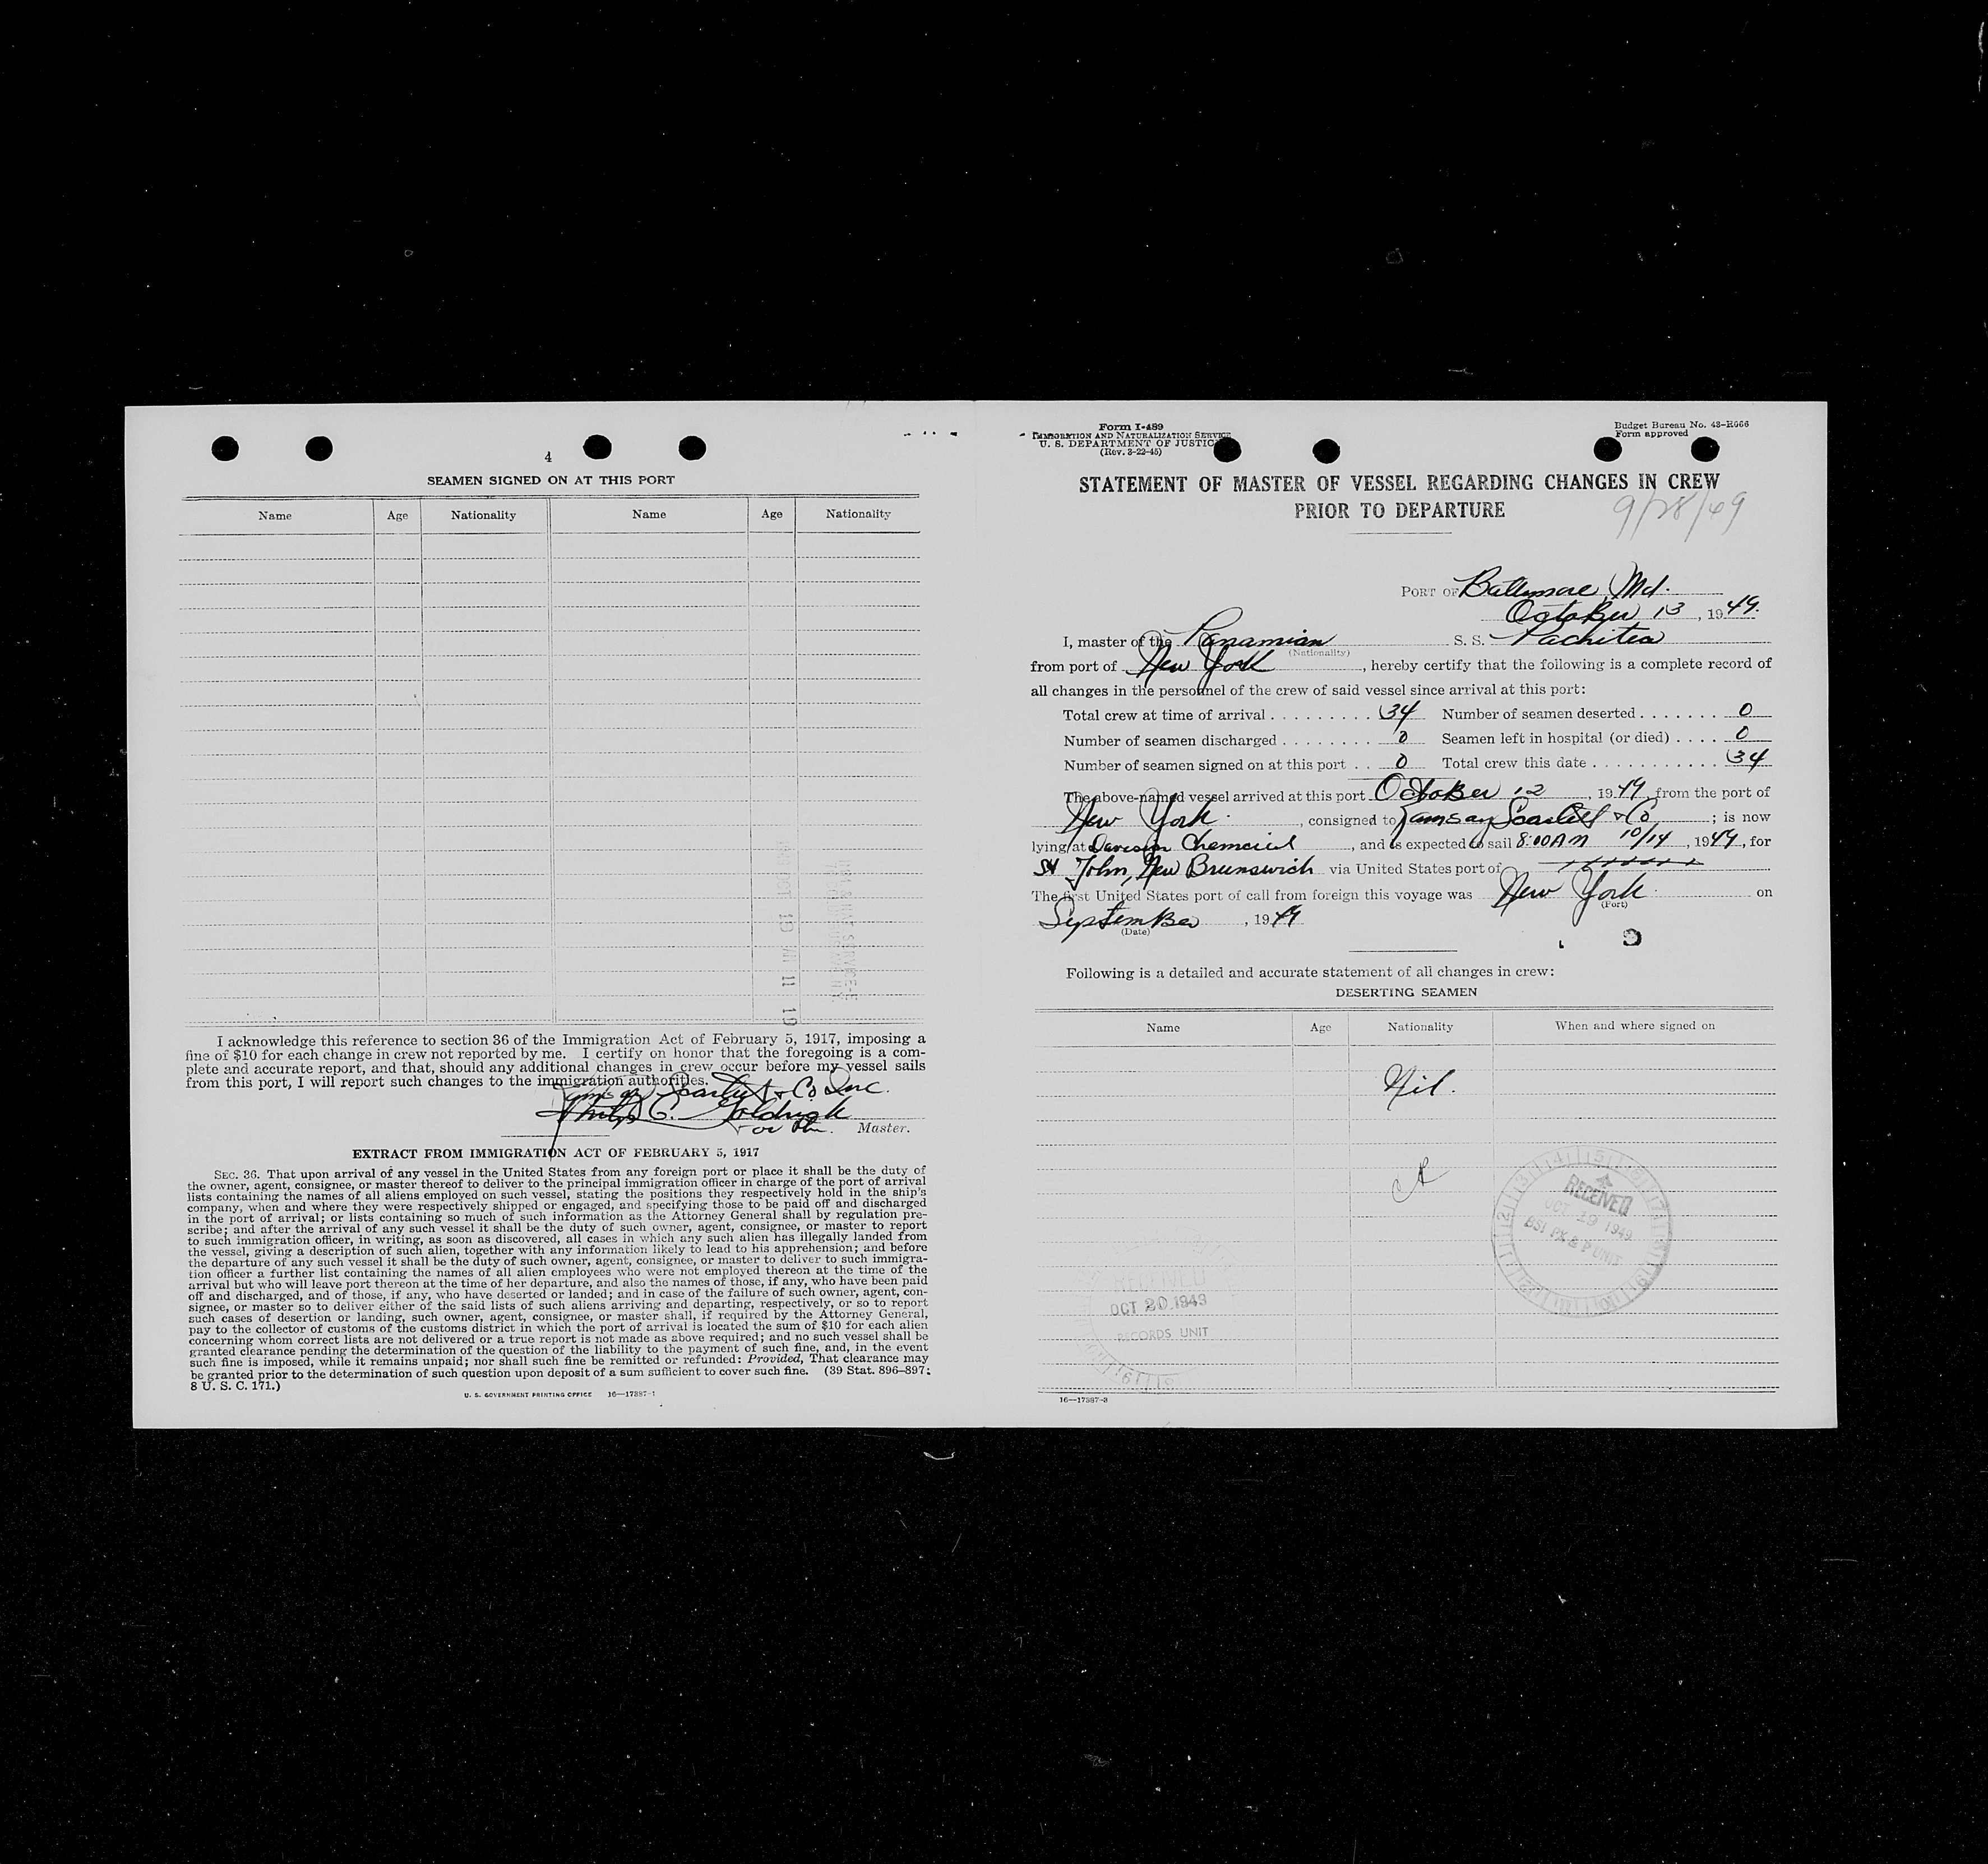 4
SEAMEN SIGNED ON AT THIS PORT
Name Age Nationality Name Age Nationality
I acknowledge this reference to section 36 of the Immigration Act of February 5, 1917, imposing a
fine of $10 for each change in crew not reported by me. I certify on honor that the foregoing is a com-
plete and accurate report, and that, should any additional changes in crew occur before my vessel sails
from this port, I will report such changes to the immigration authorities.
Ramsay Scarlett & Co Inc.
Philip C.
Master.
EXTRACT FROM IMMIGRATION ACT OF FEBRUARY 5, 1917
SEC. 36. That upon arrival of any vessel in the United States from any foreign port or place it shall be the duty of
the owner, agent, consignee, or master thereof to deliver to the principal immigration officer in charge of the port of arrival
lists containing the names of all aliens employed on such vessel, stating the positions they respectively hold in the ship's
company, when and where they were respectively shipped or engaged, and specifying those to be paid off and discharged
in the port of arrival; or lists containing so much of such information as the Attorney General shall by regulation pre-
scribe; and after the arrival of any such vessel it shall be the duty of such owner, agent, consignee, or master to report
to such immigration officer, in writing, as soon as discovered, all cases in which any such alien has illegally landed from
the vessel, giving a description of such alien, together with any information likely to lead to his apprehension; and before
the departure of any such vessel it shall be the duty of such owner, agent, consignee, or master to deliver to such immigra-
tion officer a further list containing the names of all alien employees who were not employed thereon at the time of the
arrival but who will leave port thereon at the time of her departure, and also the names of those, if any, who have been paid
off and discharged, and of those, if any, who have deserted or landed; and in case of the failure of such owner, agent, con-
signee, or master so to deliver either of the said lists of such aliens arriving and departing, respectively, or so to report
such cases of desertion or landing, such owner, agent, consignee, or master shall, if required by the Attorney General,
pay to the collector of customs of the customs district in which the port of arrival is located the sum of $10 for each alien
concerning whom correct lists are not delivered or a true report is not made as above required; and no such vessel shall be
granted clearance pending the determination of the question of the liability to the payment of such fine, and, in the event
such fine is imposed, while it remains unpaid; nor shall such fine be remitted or refunded: Provided, That clearance may
be granted prior to the determination of such question upon deposit of a sum sufficient to cover such fine. (39 Stat. 896-897;
8 U. S. C. 171.)
U. S. GOVERNMENT PRINTING OFFICE 16—17387-1
Form I-489
IMMIGRATION AND NATURALIZATION SERVICE
U. S. DEPARTMENT OF JUSTICE
(Rev. 3-22-45)
Budget Bureau No. 43-R066
Form approved
STATEMENT OF MASTER OF VESSEL REGARDING CHANGES IN CREW
PRIOR TO DEPARTURE
9/28/49
PORT OF Baltimore, Md.
October 13, 1949.
I, master of the Panamian S. S. Pachitea
(Nationality)
from port of New York, hereby certify that the following is a complete record of
all changes in the personnel of the crew of said vessel since arrival at this port:
Total crew at time of arrival . . . . . . . . . 34 Number of seamen deserted . . . . . . . 0
Number of seamen discharged . . . . . . . . 0 Seamen left in hospital (or died) . . . . 0
Number of seamen signed on at this port . . 0 Total crew this date . . . . . . . . . . . 34
The above-named vessel arrived at this port October 12, 1949, from the port of
New York, consigned to Ramsay Scarlett & Co; is now
lying at Davison Chemical, and is expected to sail 8:00 AM 10/14, 1949, for
St John, New Brunswick via United States port of
The first United States port of call from foreign this voyage was New York on
(Port)
September, 1949
(Date)
Following is a detailed and accurate statement of all changes in crew:
DESERTING SEAMEN
Name Age Nationality When and where signed on
Nil.
RECEIVED
OCT 19 1949
BSI PX & P UNIT
RECEIVED
OCT 20 1949
RECORDS UNIT
16—17387-3